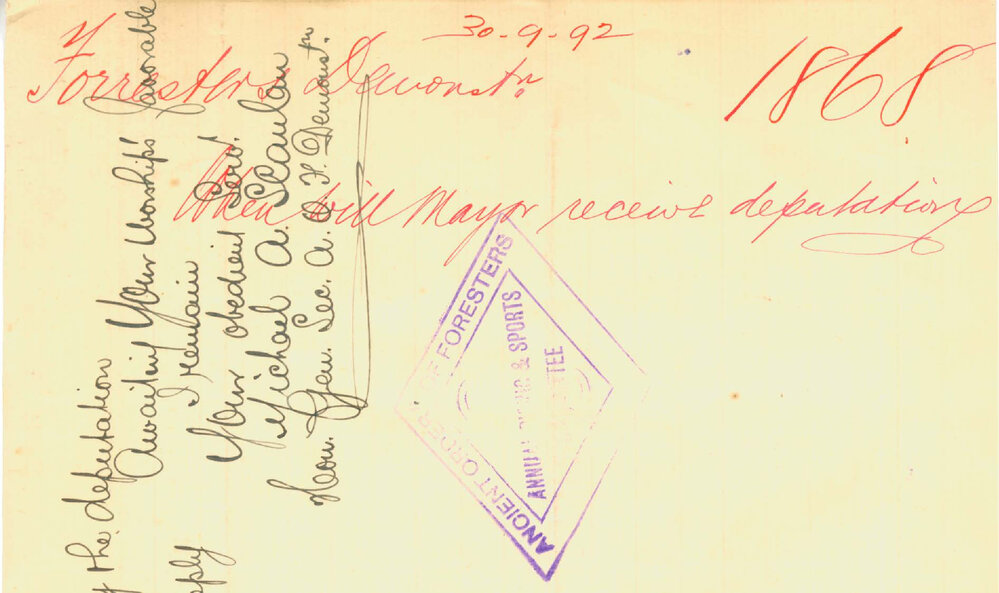 30-9-92
Forresters Demonstn
1868
When will Mayor receive deputation
the deputation
Awaiting Your Worship's favorable
reply
I remain
Your obedient Servt
Michael A. Scanlan
Hon. Gen. Sec. A. O. F. Demonstn.
ANCIENT ORDER OF FORESTERS
ANNUAL & SPORTS